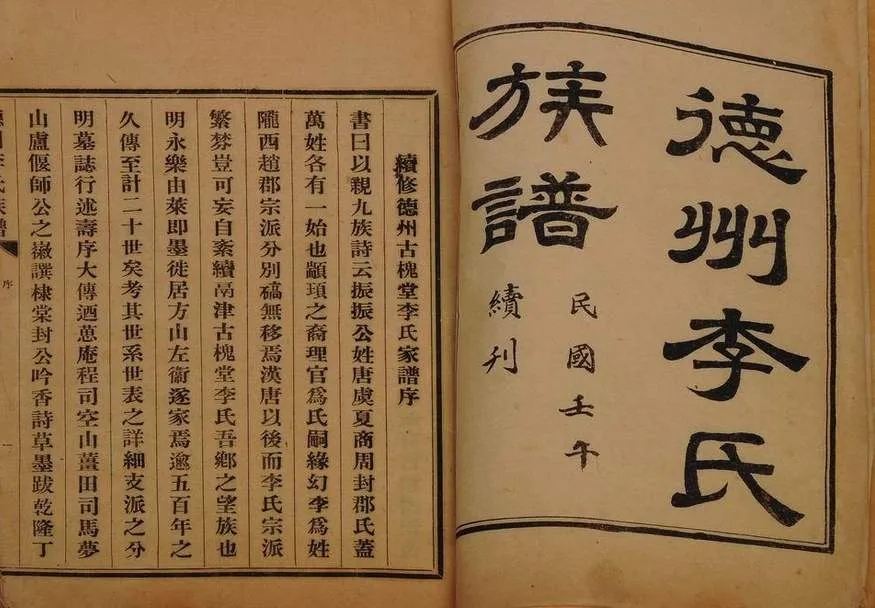 德州李氏
族譜
民國壬午
續刊
續修德州古槐堂李氏家譜序
書曰以親九族詩云振振公姓唐虞夏商周封郡氏蓋
萬姓各有一始也顓頊之裔理官爲氏嗣緣幻李爲姓
隴西趙郡宗派分別礄無移焉漢唐以後而李氏宗派
繁棼豈可妄自紊續鬲津古槐堂李氏吾鄉之望族也
明永樂由萊即墨徙居方山左衞遂家焉逾五百年之
久傳至計二十世矣考其世系世表之詳細支派之分
明墓誌行述壽序大傳迺蒽庵程司空山薑田司馬夢
山盧偃師公之徽譔棣棠封公吟香詩草墨跋乾隆丁
德州李氏族譜
序
一